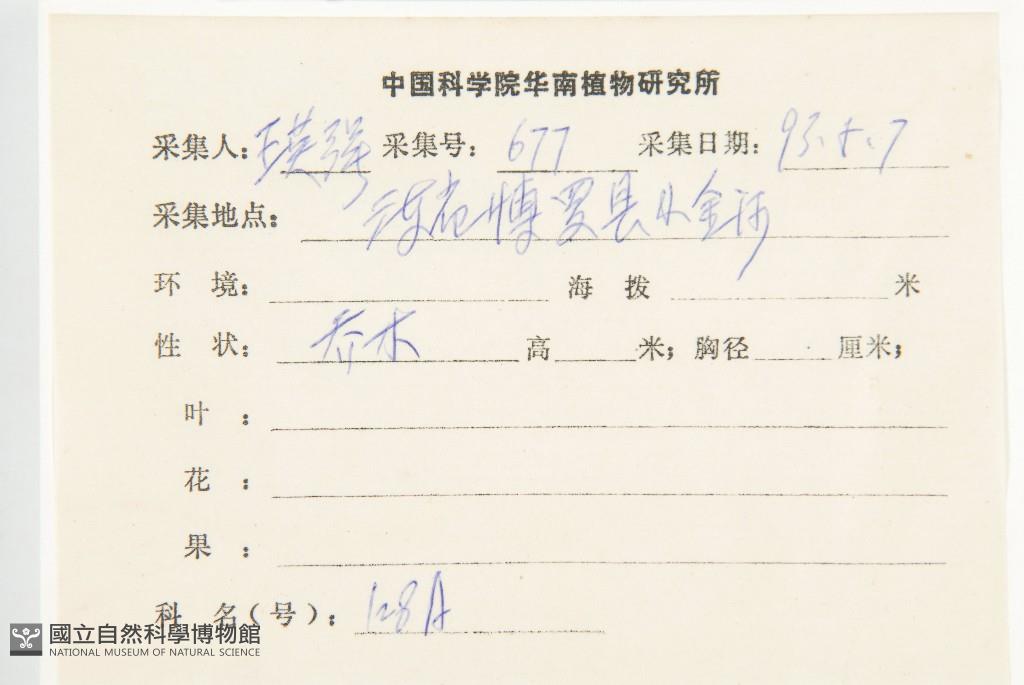 中国科学院华南植物研究所
采集人：王英强 采集号：677 采集日期：93.5.7
采集地点：博罗县小金河
环 境： 海 拨 米
性 状：乔木 高 米；胸径 厘米；
叶：
花：
果：
科 名(号)：128A
國立自然科學博物館
NATIONAL MUSEUM OF NATURAL SCIENCE